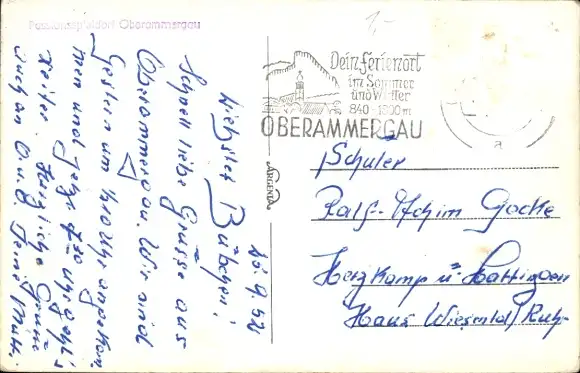 Passionsspieldorf Oberammergau
1,-
Dein Ferienort
im Sommer
und Winter
840 - 1800 m
OBERAMMERGAU
a
ARGENTA
16.9.52
Liebster Bübchen!
Schnell liebe Grüsse aus
Oberammergau. Wir sind
Gestern um Uhr angekom
men und jetzt Uhr geht's
weiter. Herzliche Grüsse
auch an O. u. O Deine Mutti.
Schüler
Ralf-Achim Gocke
Herzkamp ü. Hattingen
Haus Wiesental/Ruhr